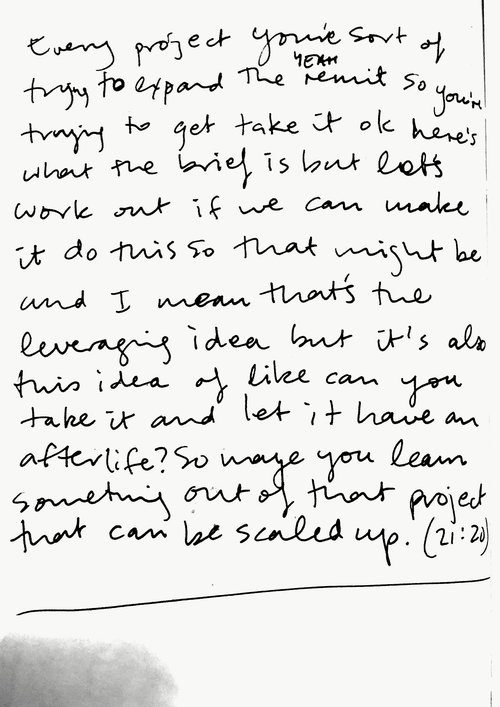 Every project you're sort of
trying to expand the YEAH remit so you're
trying to get take it ok here's
what the brief is but let's
work out if we can make
it do this so that might be
and I mean that's the
leveraging idea but it's also
this idea of like can you
take it and let it have an
afterlife? So maye you learn
something out of that project
that can be scaled up. (21:20)